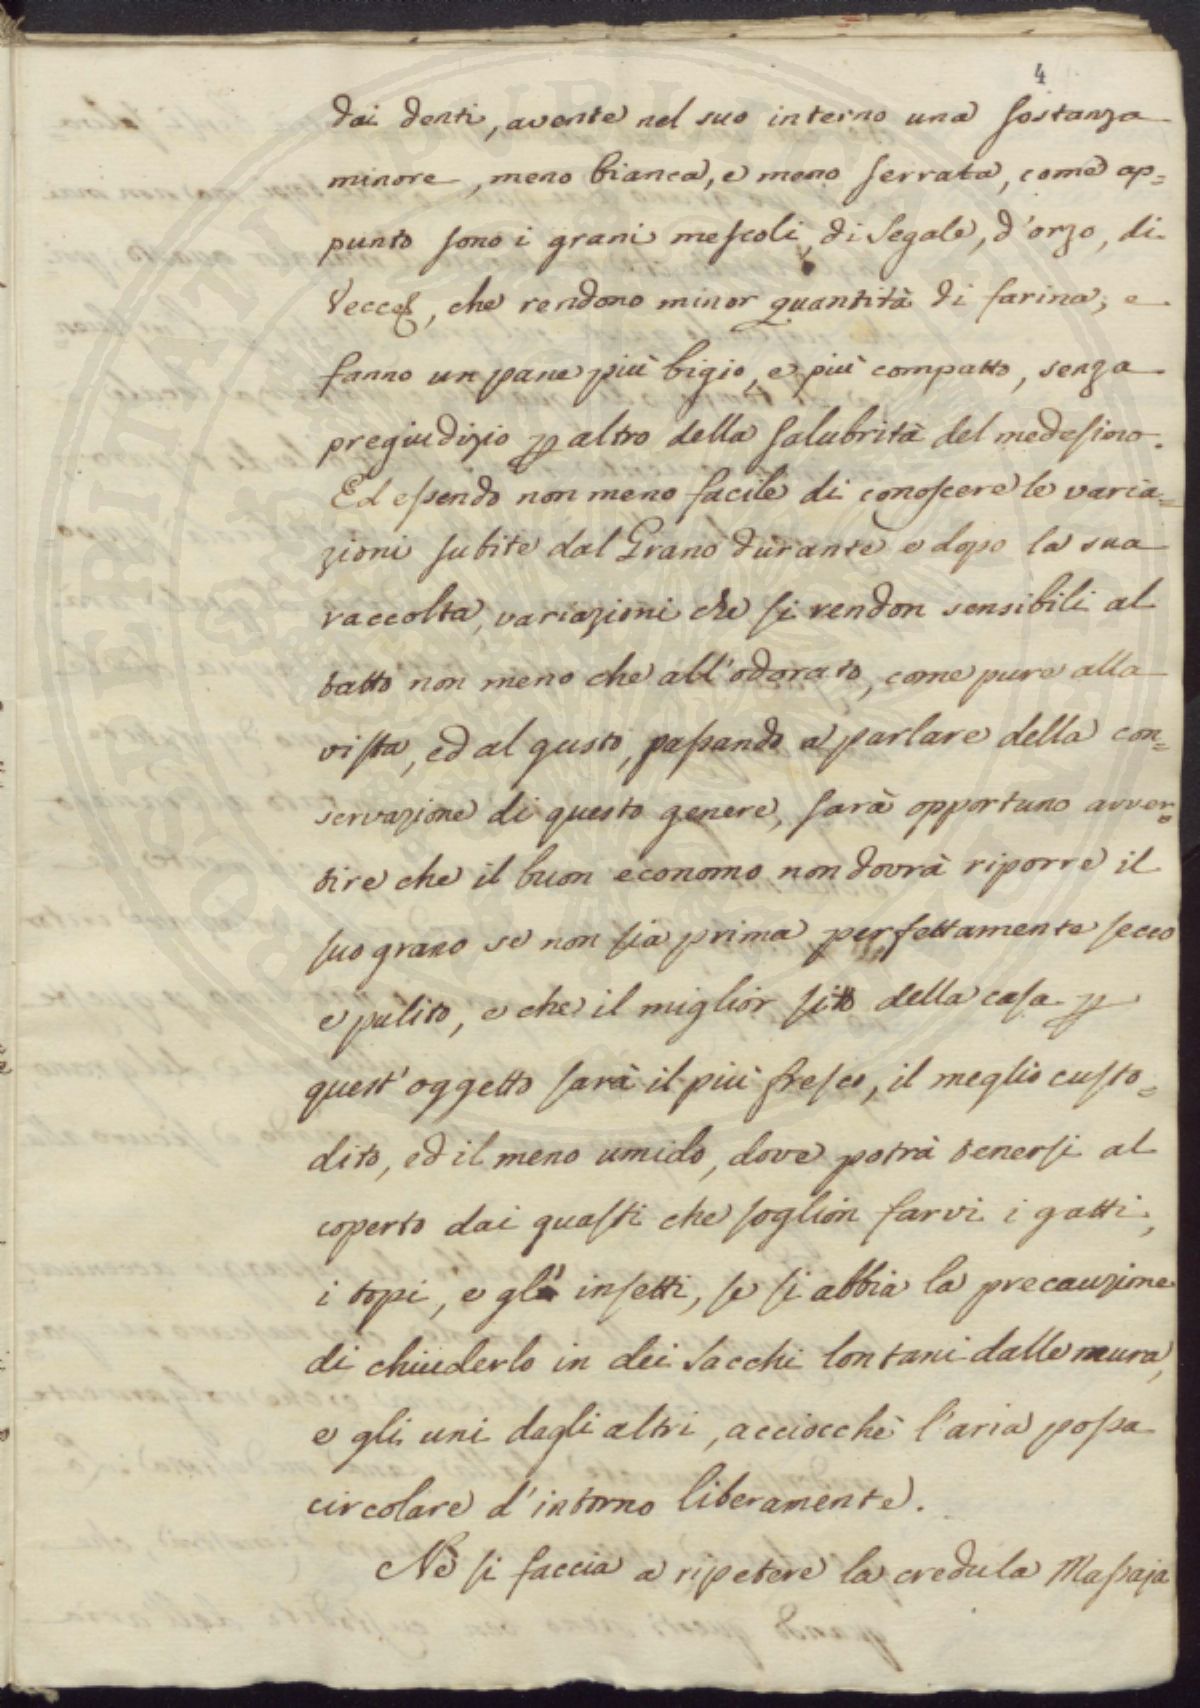 4
dai denti, avente nel suo interno una sostanza
minore, meno bianca, e meno serrata, come ap=
punto sono i grani mescoli di Segale, d'orzo, di
Vecce, che rendono minor quantità di farina, e
fanno un pane più bigio, e più compatto, senza
pregiudizio altro della salubrità del medesimo.
Ed essendo non meno facile di conoscere le varia=
zioni subite dal Grano durante e dopo la sua
raccolta, variazioni che si rendon sensibili al
tatto non meno che all'odorato, come pure alla
vista, ed al gusto, passando a parlare della con=
servazione di questo genere, sarà opportuno avver=
tire che il buon economo non dovrà riporre il
suo grano se non sia prima perfettamente secco
e pulito, e che il miglior sito della casa
quest'oggetto sarà il più fresco, il meglio custo=
dito, ed il meno umido, dove potrà tenersi al
coperto dai guasti che soglion farvi i gatti,
i topi, e gl' insetti, se si abbia la precauzione
di chiuderlo in dei Sacchi lontani dalle mura,
e gli uni dagli altri, acciocchè l'aria possa
circolare d'intorno liberamente.
Nè si faccia a ripetere la credula Massaja